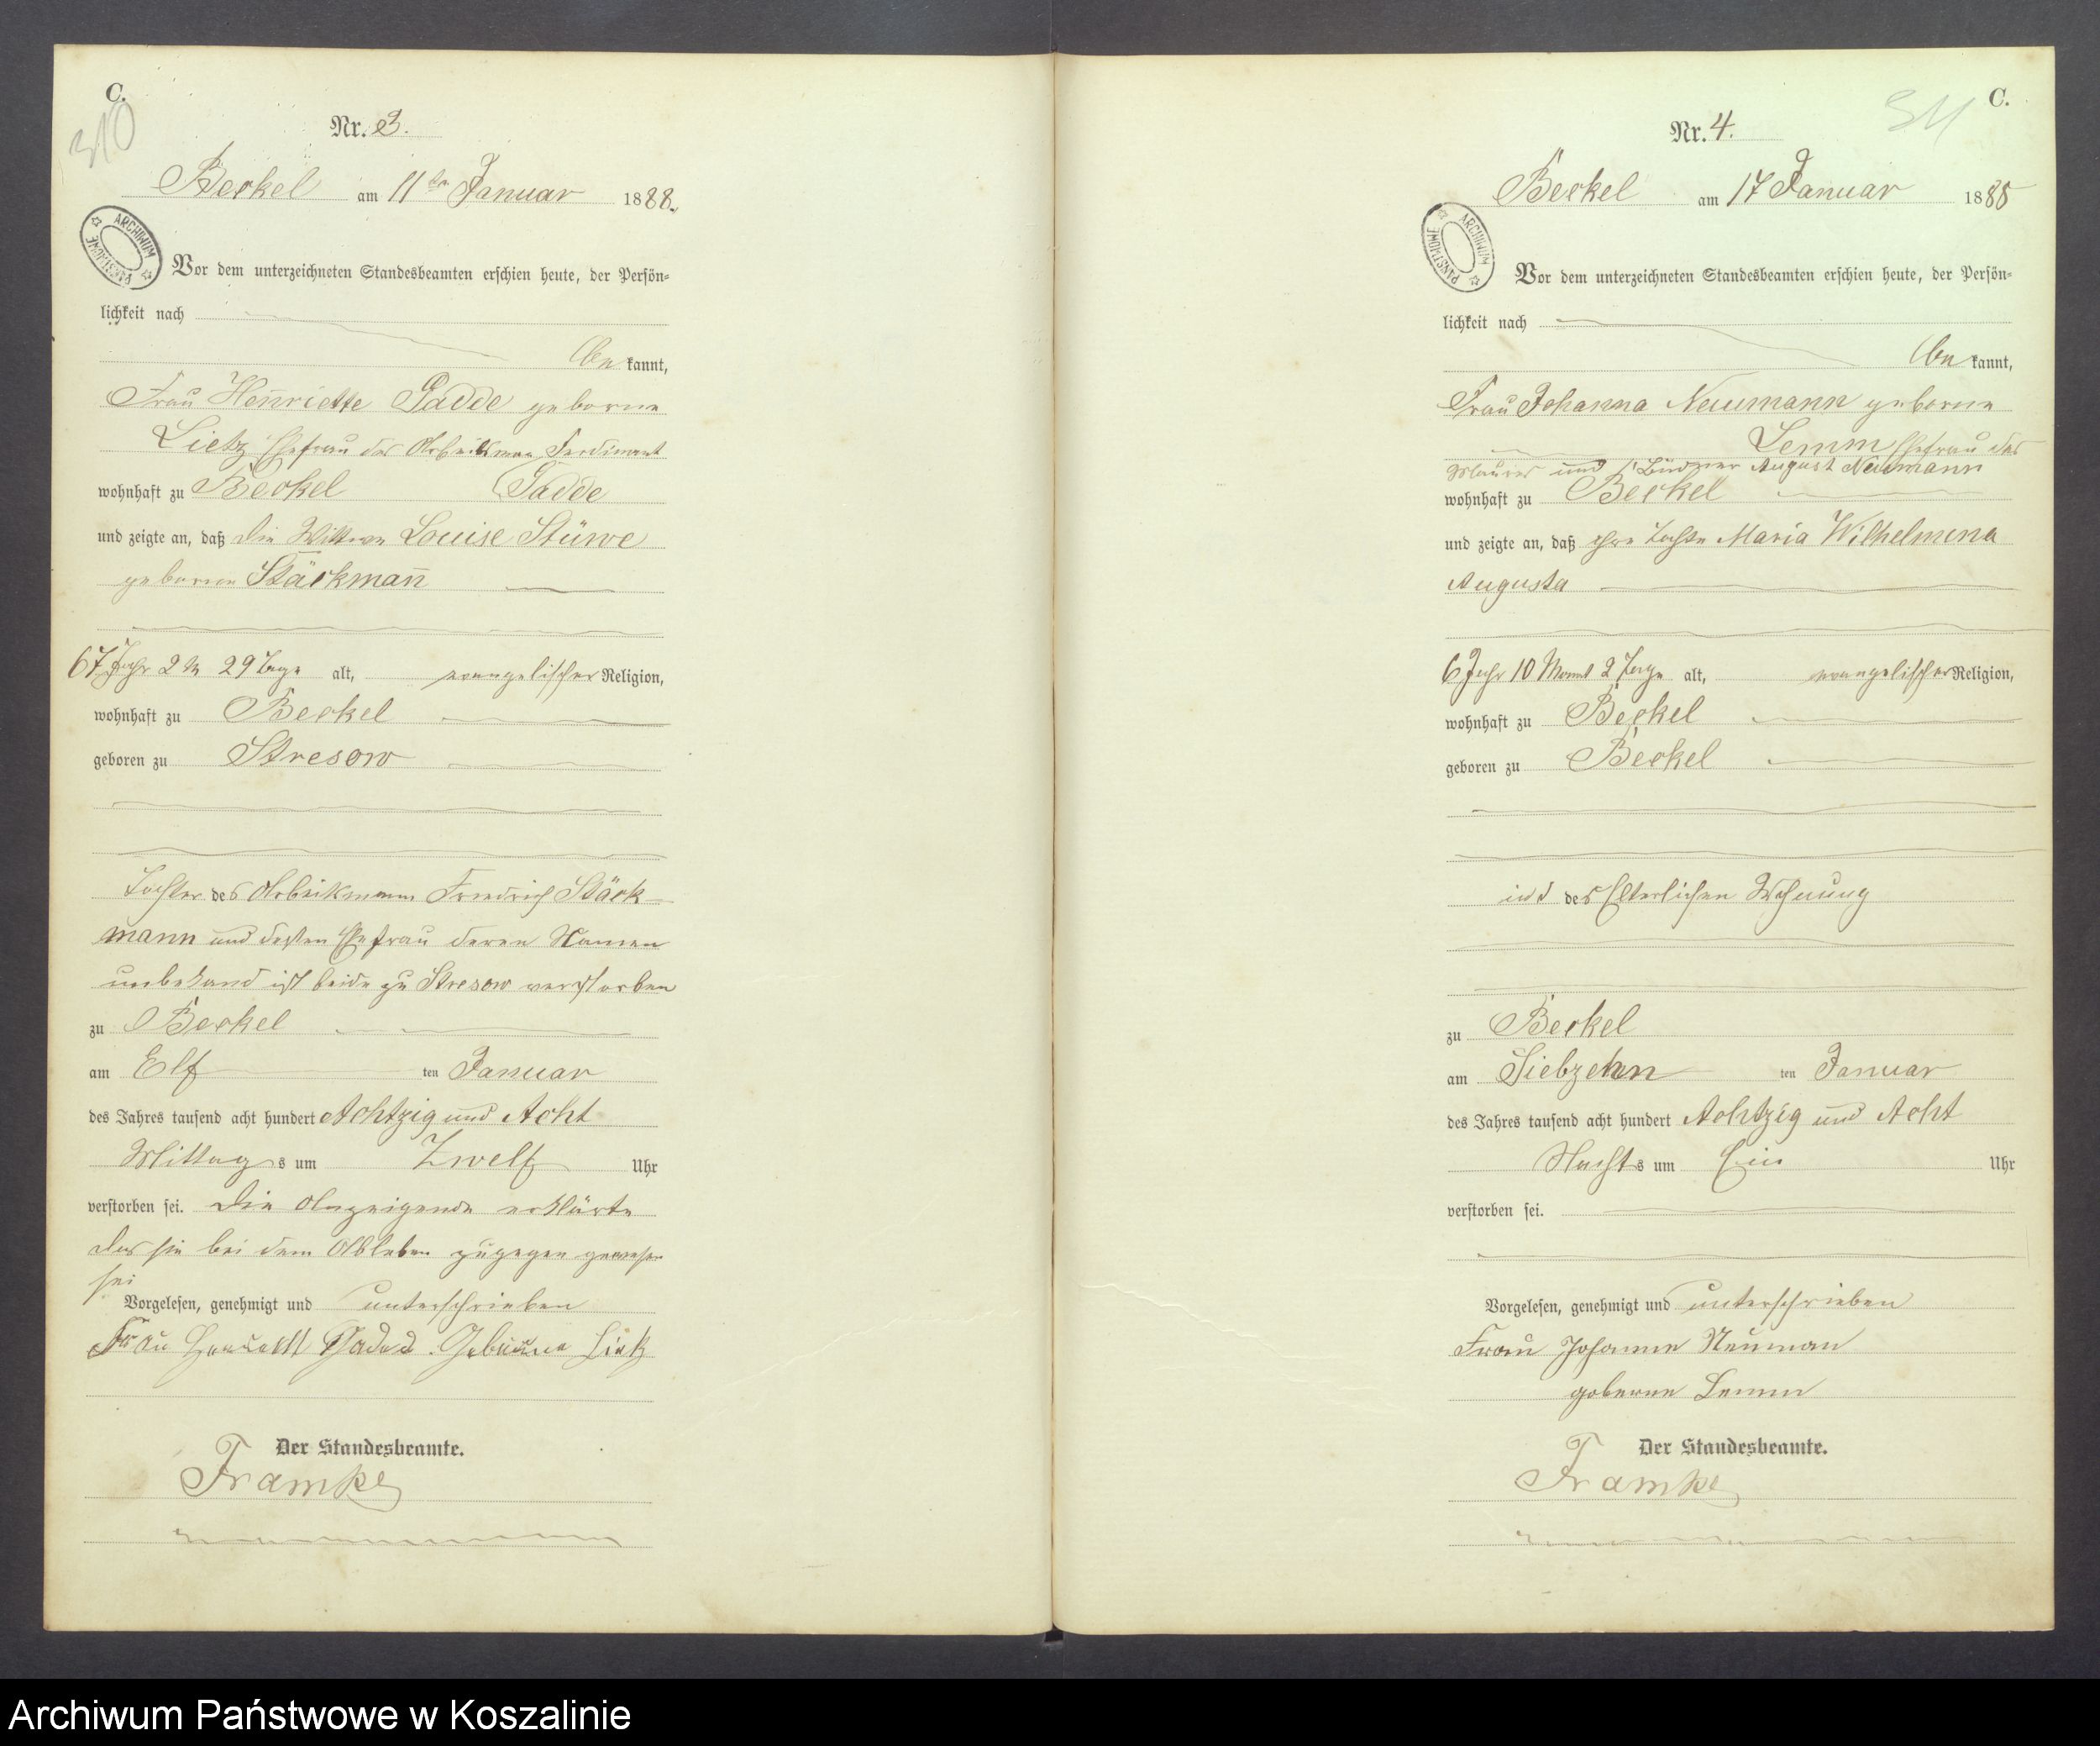 C.
310
Nr. 3.
Beckel am 11ten Januar 1888.
ARCHIWUM PAŃSTWOWE
Vor dem unterzeichneten Standesbeamten erschien heute, der Persön-
lichkeit nach
be kannt,
Frau Henriette Gadde geborne
Lietz Ehefrau des Arbeitsman Ferdinant
wohnhaft zu Beckel Gadde
und zeigte an, daß die Wittwe Louise Stüwe
geborne Stäckmañ
67 Jahr 2 M 29 Tage alt, evangelischer Religion,
wohnhaft zu Beckel
geboren zu Stresow
Tochter des Arbeitsmann Friedrich Stäck-
mann und dessen Ehefrau deren Namen
unbekand ist beide zu Stresow verstorben
zu Beckel
am Elf ten Januar
des Jahres tausend acht hundert Achtzig und Acht
Mittags um Zwelf Uhr
verstorben sei. Die Anzeigende erklärte
das sie bei dem Ableben zugegen gewesen
sei
Vorgelesen, genehmigt und unterschrieben
Frau Geborne Lietz
Der Standesbeamte.
Framke
C.
311
Nr. 4.
Beckel am 17 Januar 1888
ARCHIWUM PAŃSTWOWE
Vor dem unterzeichneten Standesbeamten erschien heute, der Persön-
lichkeit nach
be kannt,
Frau Johanna Neumann geborne
Lemm Ehefrau des
Maurer und Büdner August Neumann
wohnhaft zu Beckel
und zeigte an, daß ihre Tochter Maria Wilhelmina
Augusta
6 Jahr 10 Monat 2 Tage alt, evangelischer Religion,
wohnhaft zu Beckel
geboren zu Beckel
in d des Elterlichen Wohnung
zu Beckel
am Siebzehn ten Januar
des Jahres tausend acht hundert Achtzig und Acht
Nachts um Ein Uhr
verstorben sei.
Vorgelesen, genehmigt und unterschrieben
Frau Johanne Neuman
geborne Lemm
Der Standesbeamte.
Framke
Archiwum Państwowe w Koszalinie